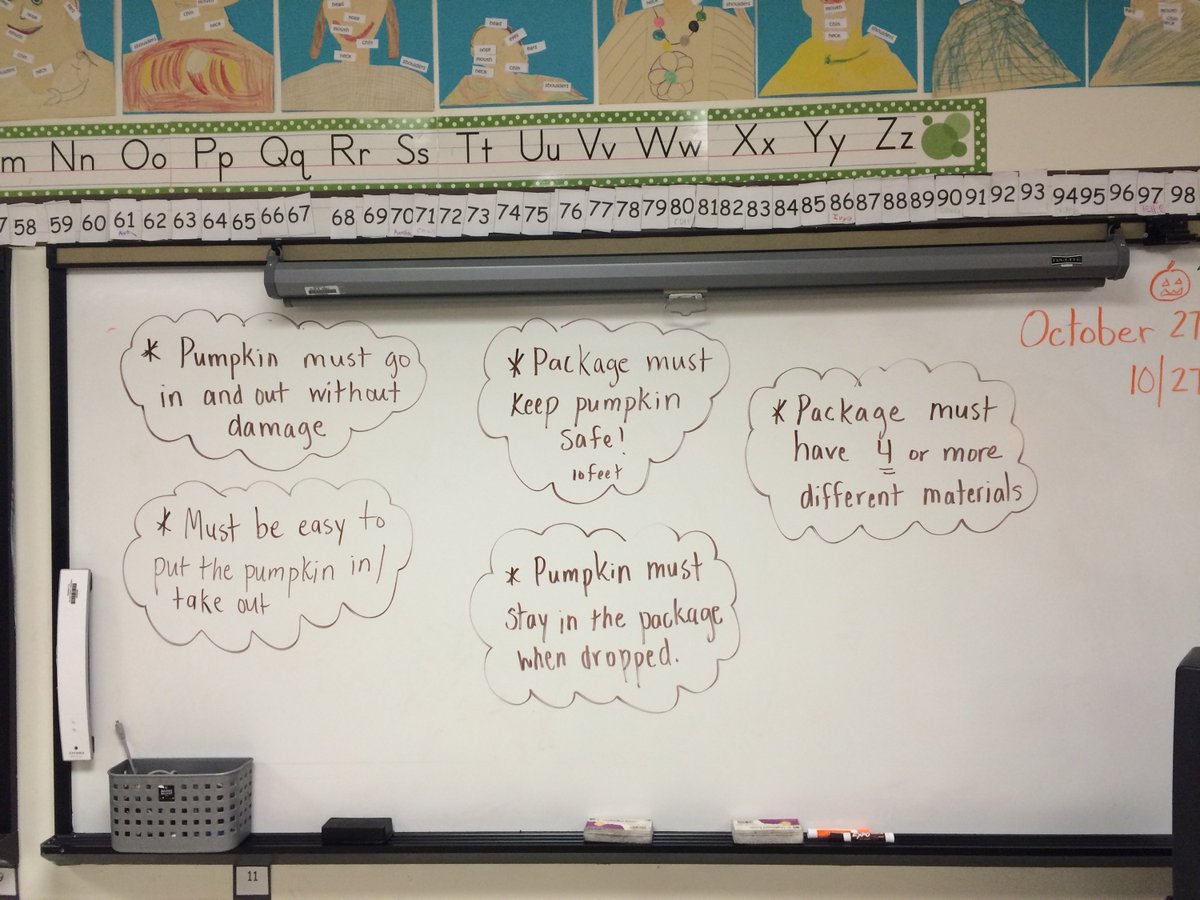 head
mouth
chin
neck
shoulders
mouth
neck
head
nose
mouth
chin
neck
shoulders
head
nose
eyes
mouth
neck
chin
shoulders
mouth
chin
neck
shoulders
m Nn Oo Pp Qq Rr Ss Tt Uu Vv Ww Xx Yy Zz
7 58 59 60 61 62 63 64 65 66 67 68 69 70 71 72 73 74 75 76 77 78 79 80 81 82 83 84 85 86 87 88 89 90 91 92 93 94 95 96 97 98
October 27
10/27
* Pumpkin must go
in and out without
damage
* Package must
keep pumpkin
safe!
10 feet
* Package must
have 4 or more
different materials
* Must be easy to
put the pumpkin in/
take out
* Pumpkin must
stay in the package
when dropped.
EXPO
11
9